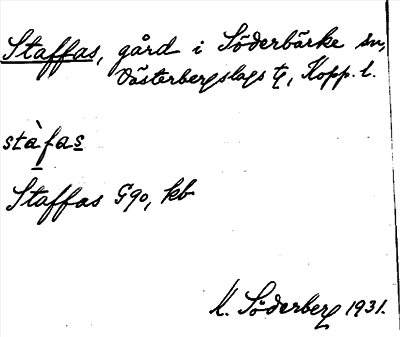 Staffas, gård i Söderbärke sn,
Västerbergslags tg, Kopp. l.
stàfas
Staffas G90, kb
K. Söderberg 1931.